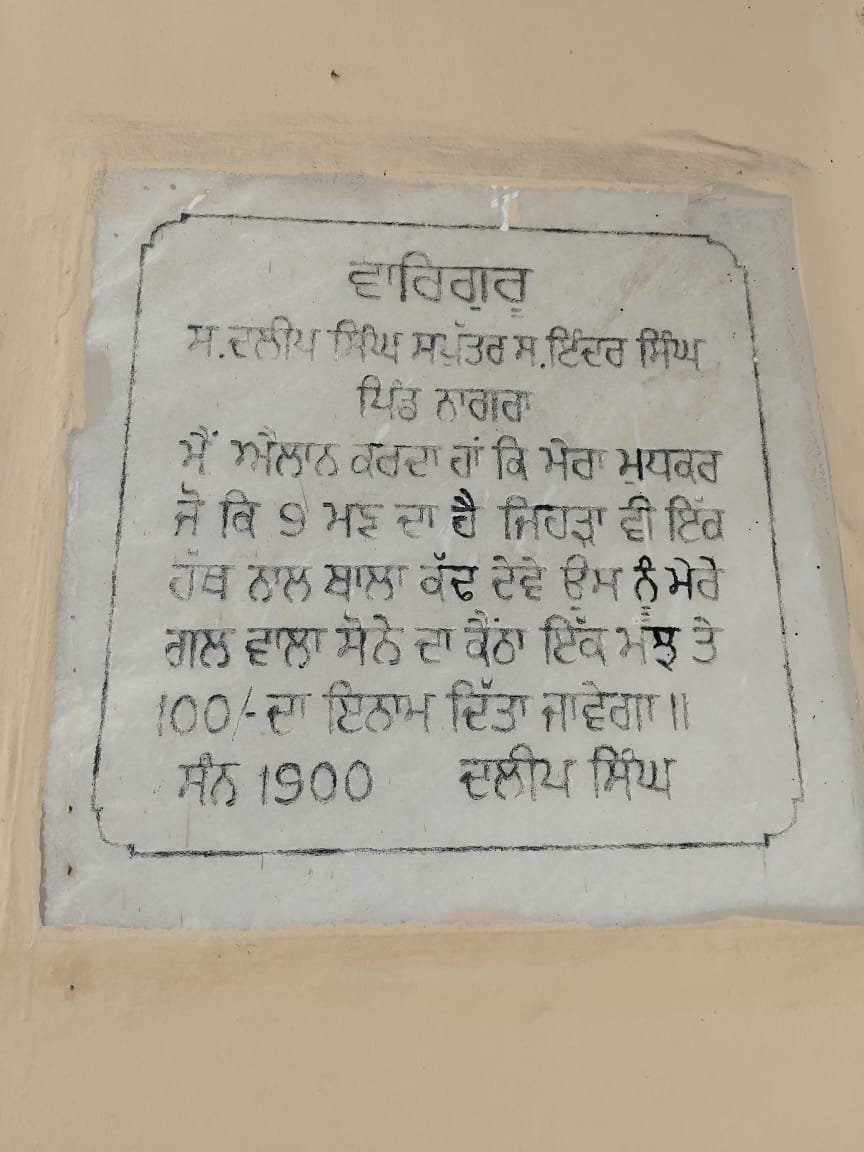 ਵਾਹਿਗੁਰੂ
ਸ.ਦਲੀਪ ਸਿੰਘ ਸਪੁੱਤਰ ਸ.ਇੰਦਰ ਸਿੰਘ
ਪਿੰਡ ਨਾਗਰਾ
ਮੈਂ ਐਲਾਨ ਕਰਦਾ ਹਾਂ ਕਿ ਮੇਰਾ ਮੁਧਕਰ
ਜੋ ਕਿ 9 ਮਣ ਦਾ ਹੈ ਜਿਹੜਾ ਵੀ ਇੱਕ
ਹੱਥ ਨਾਲ ਬਾਲਾ ਕੱਢ ਦੇਵੇ ਉਸ ਨੂੰ ਮੇਰੇ
ਗਲ ਵਾਲਾ ਸੋਨੇ ਦਾ ਕੈਂਠਾ ਇੱਕ ਮੱਝ ਤੇ
100/- ਦਾ ਇਨਾਮ ਦਿੱਤਾ ਜਾਵੇਗਾ॥
ਸੰਨ 1900 ਦਲੀਪ ਸਿੰਘ